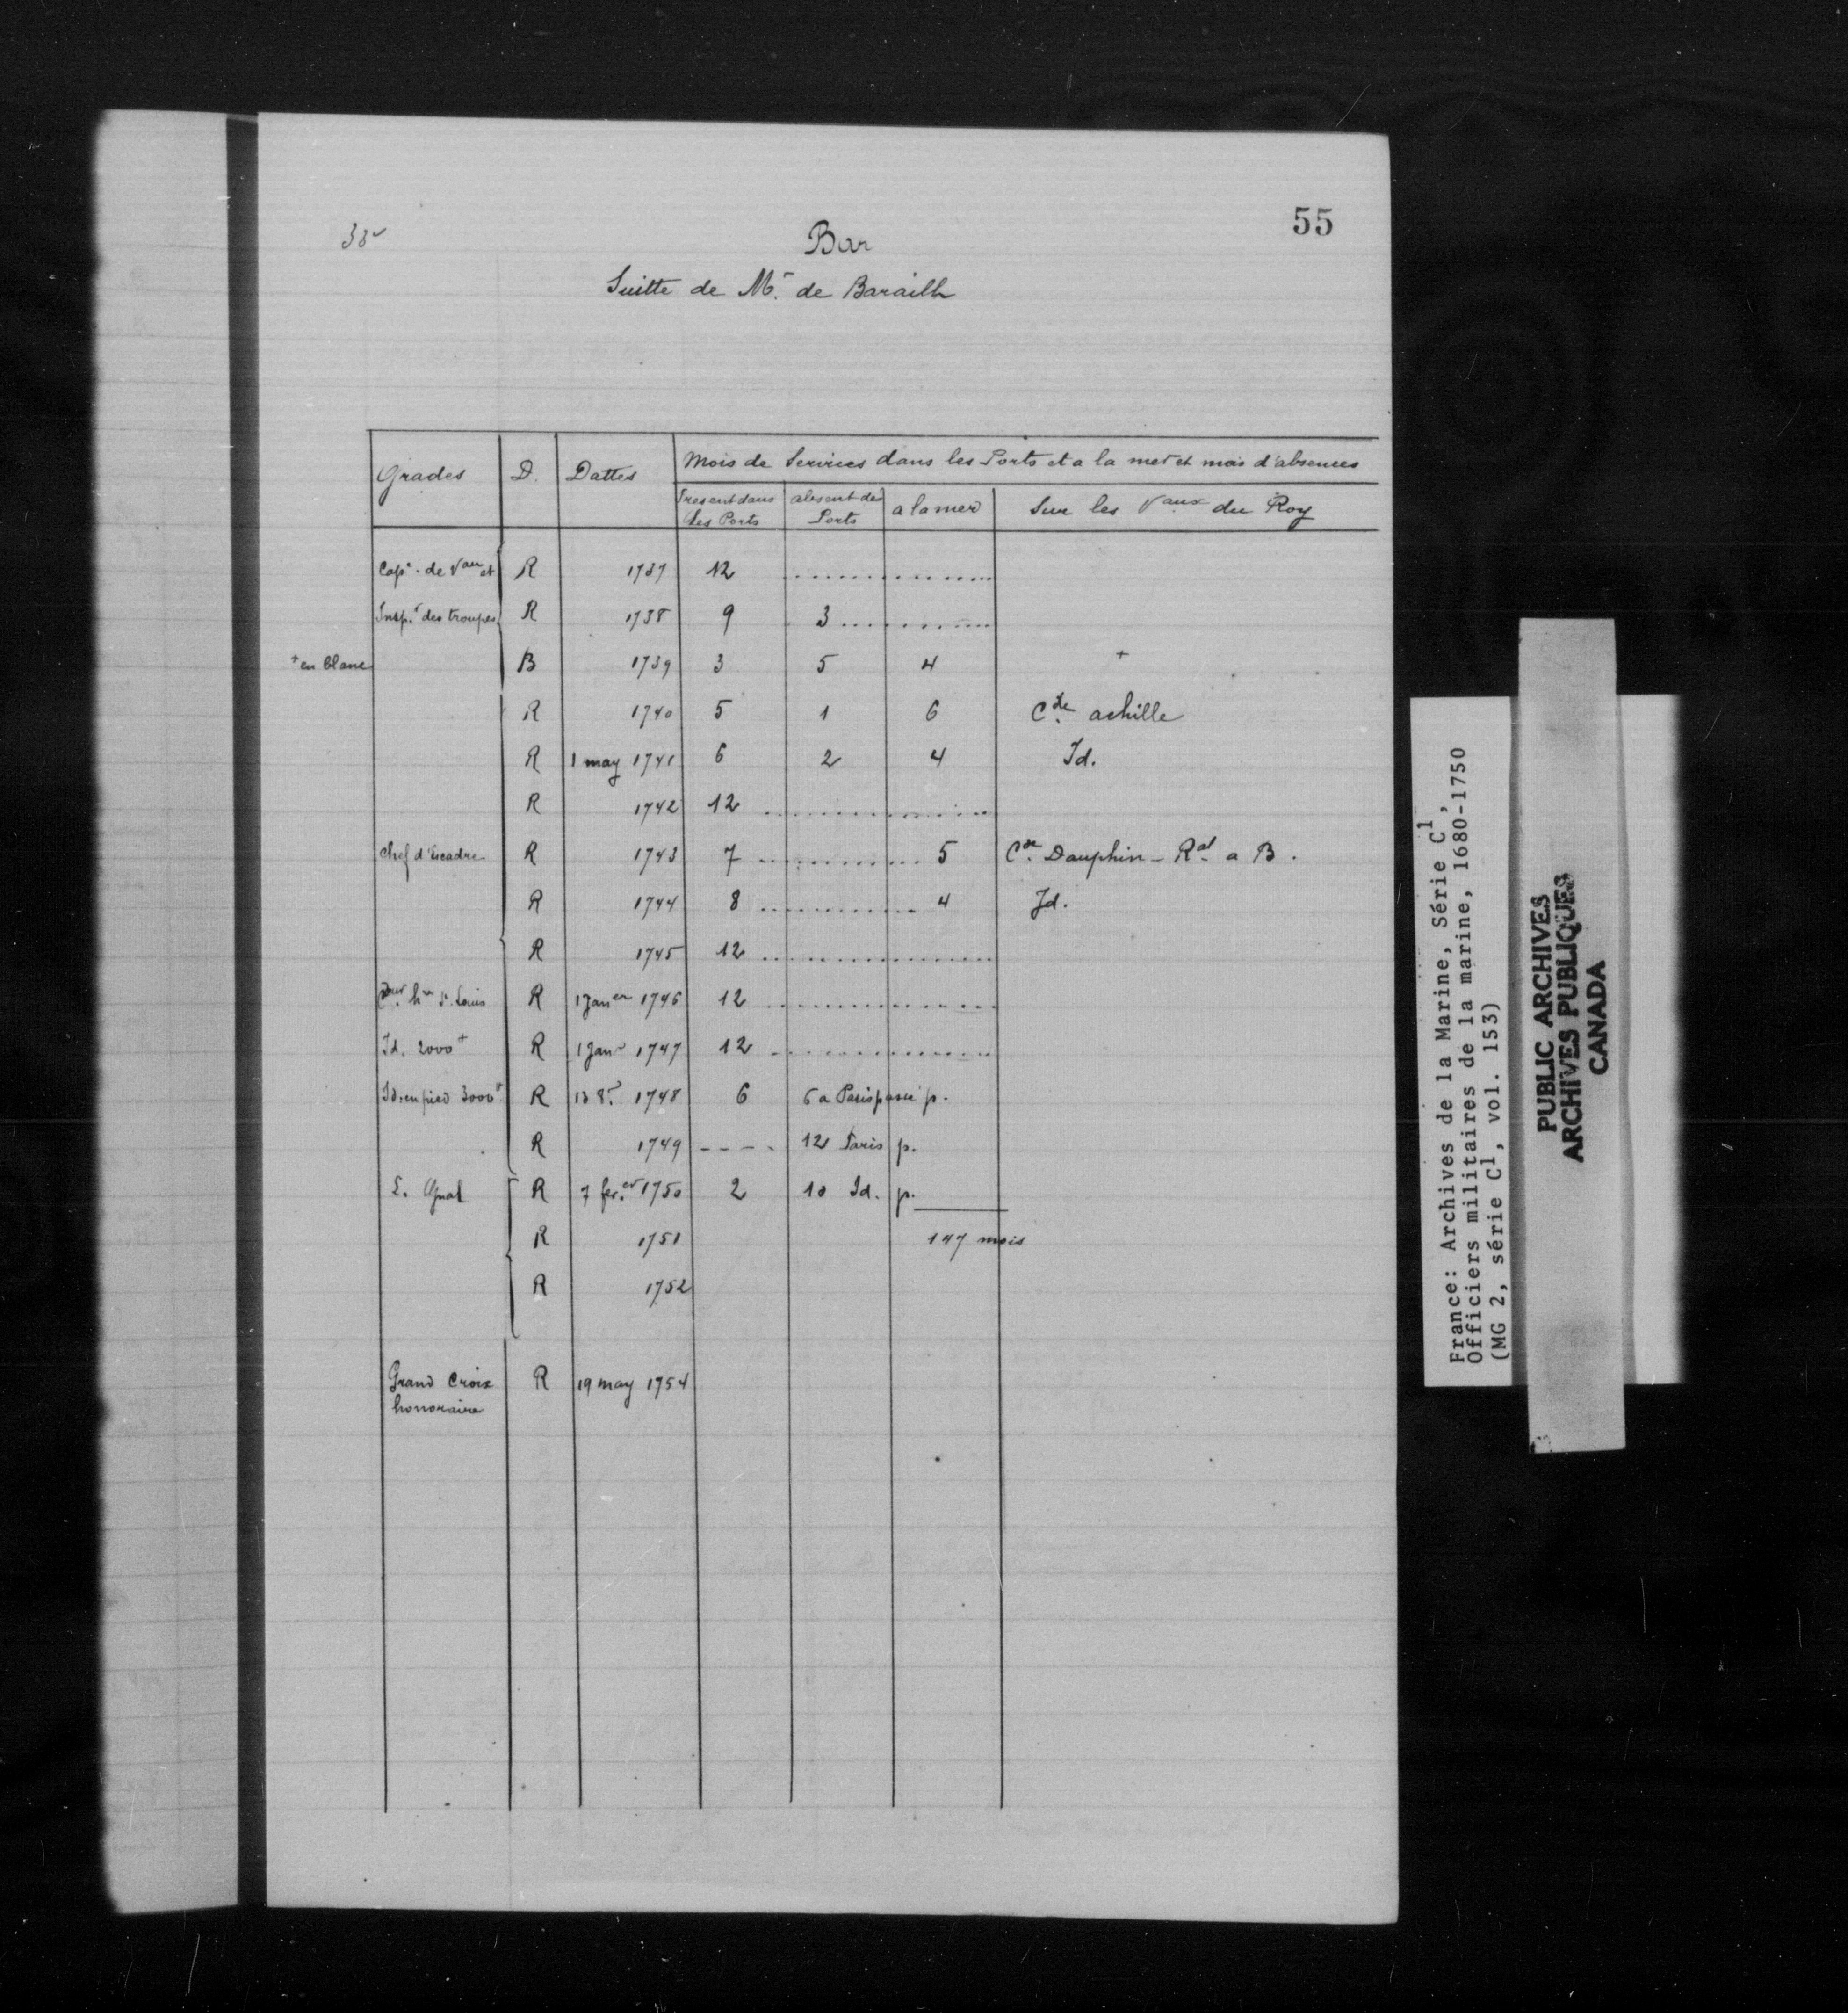 55
33v
Bar
Suitte de Mr. de Barailh
Grades D. Dattes Mois de Services dans les Ports et a la mer et mois d'absences
Present dans les Ports absent des Ports a la mer Sur les Vaux du Roy
Capne. de Vau et R 1737 12 ..................
Insp.r des troupes R 1738 9 3 ..............
+ en blanc B 1739 3 5 4 +
R 1740 5 1 6 Cde. achille
R 1 may 1741 6 2 4 Id.
R 1742 12 ..................
Chef d'Escadre R 1743 7 .............. 5 Cde. Dauphin - Ral. a B.
R 1744 8 .............. 4 Id.
R 1745 12 ..................
hre St. Louis R 1 Janer 1746 12 ..................
Id. 2000 R 1 Janr 1747 12 ..................
Id. en pied 3000 R 13 8r. 1748 6 6 a Paris p.
R 1749 ---- 12 Paris p.
L. Gnal R 7 fer.er 1750 2 10 Id. p.
R 1751 147 mois
R 1752
Grand Croix R 19 may 1754
honoraire
France: Archives de la Marine, Série C1,
Officiers militaires de la marine, 1680-1750
(MG 2, série C1, vol. 153)
PUBLIC ARCHIVES
ARCHIVES PUBLIQUES
CANADA